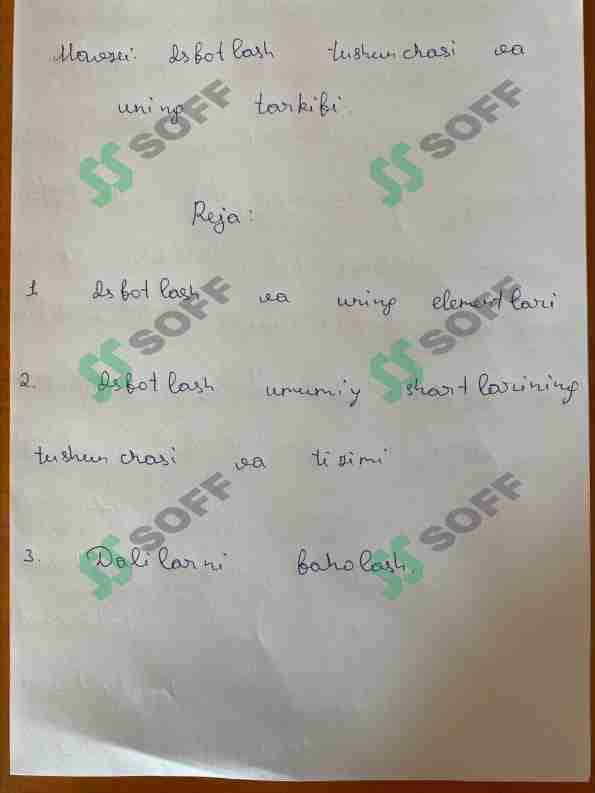 Mavzu: Isbotlash tushunchasi va
uning tarkibi.
SOFF SOFF
Reja:
1. Isbotlash va uning elementlari
SOFF SOFF
2. Isbotlash umumiy shartlarining
tushunchasi va tizimi
SOFF SOFF
3. Dalilarni baholash.